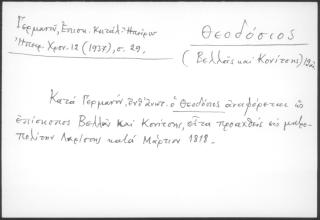 Γερμανοῦ, Ἐπισκ. Κατάλ. Ἠπείρου
Ἠπειρ. Χρον. 12 (1937), σ. 29.
Θεοδόσιος
(Βελλᾶς καὶ Κονίτσης)
Κατὰ Γερμανόν, ἔνθ' ἀνωτ. ὁ Θεοδόσιος ἀναφέρεται ὡς
ἐπίσκοπος Βελλᾶς καὶ Κονίτσης, εἶτα προαχθεὶς εἰς μητρο-
πολίτην Λαρίσσης κατὰ Μάρτιον 1818.